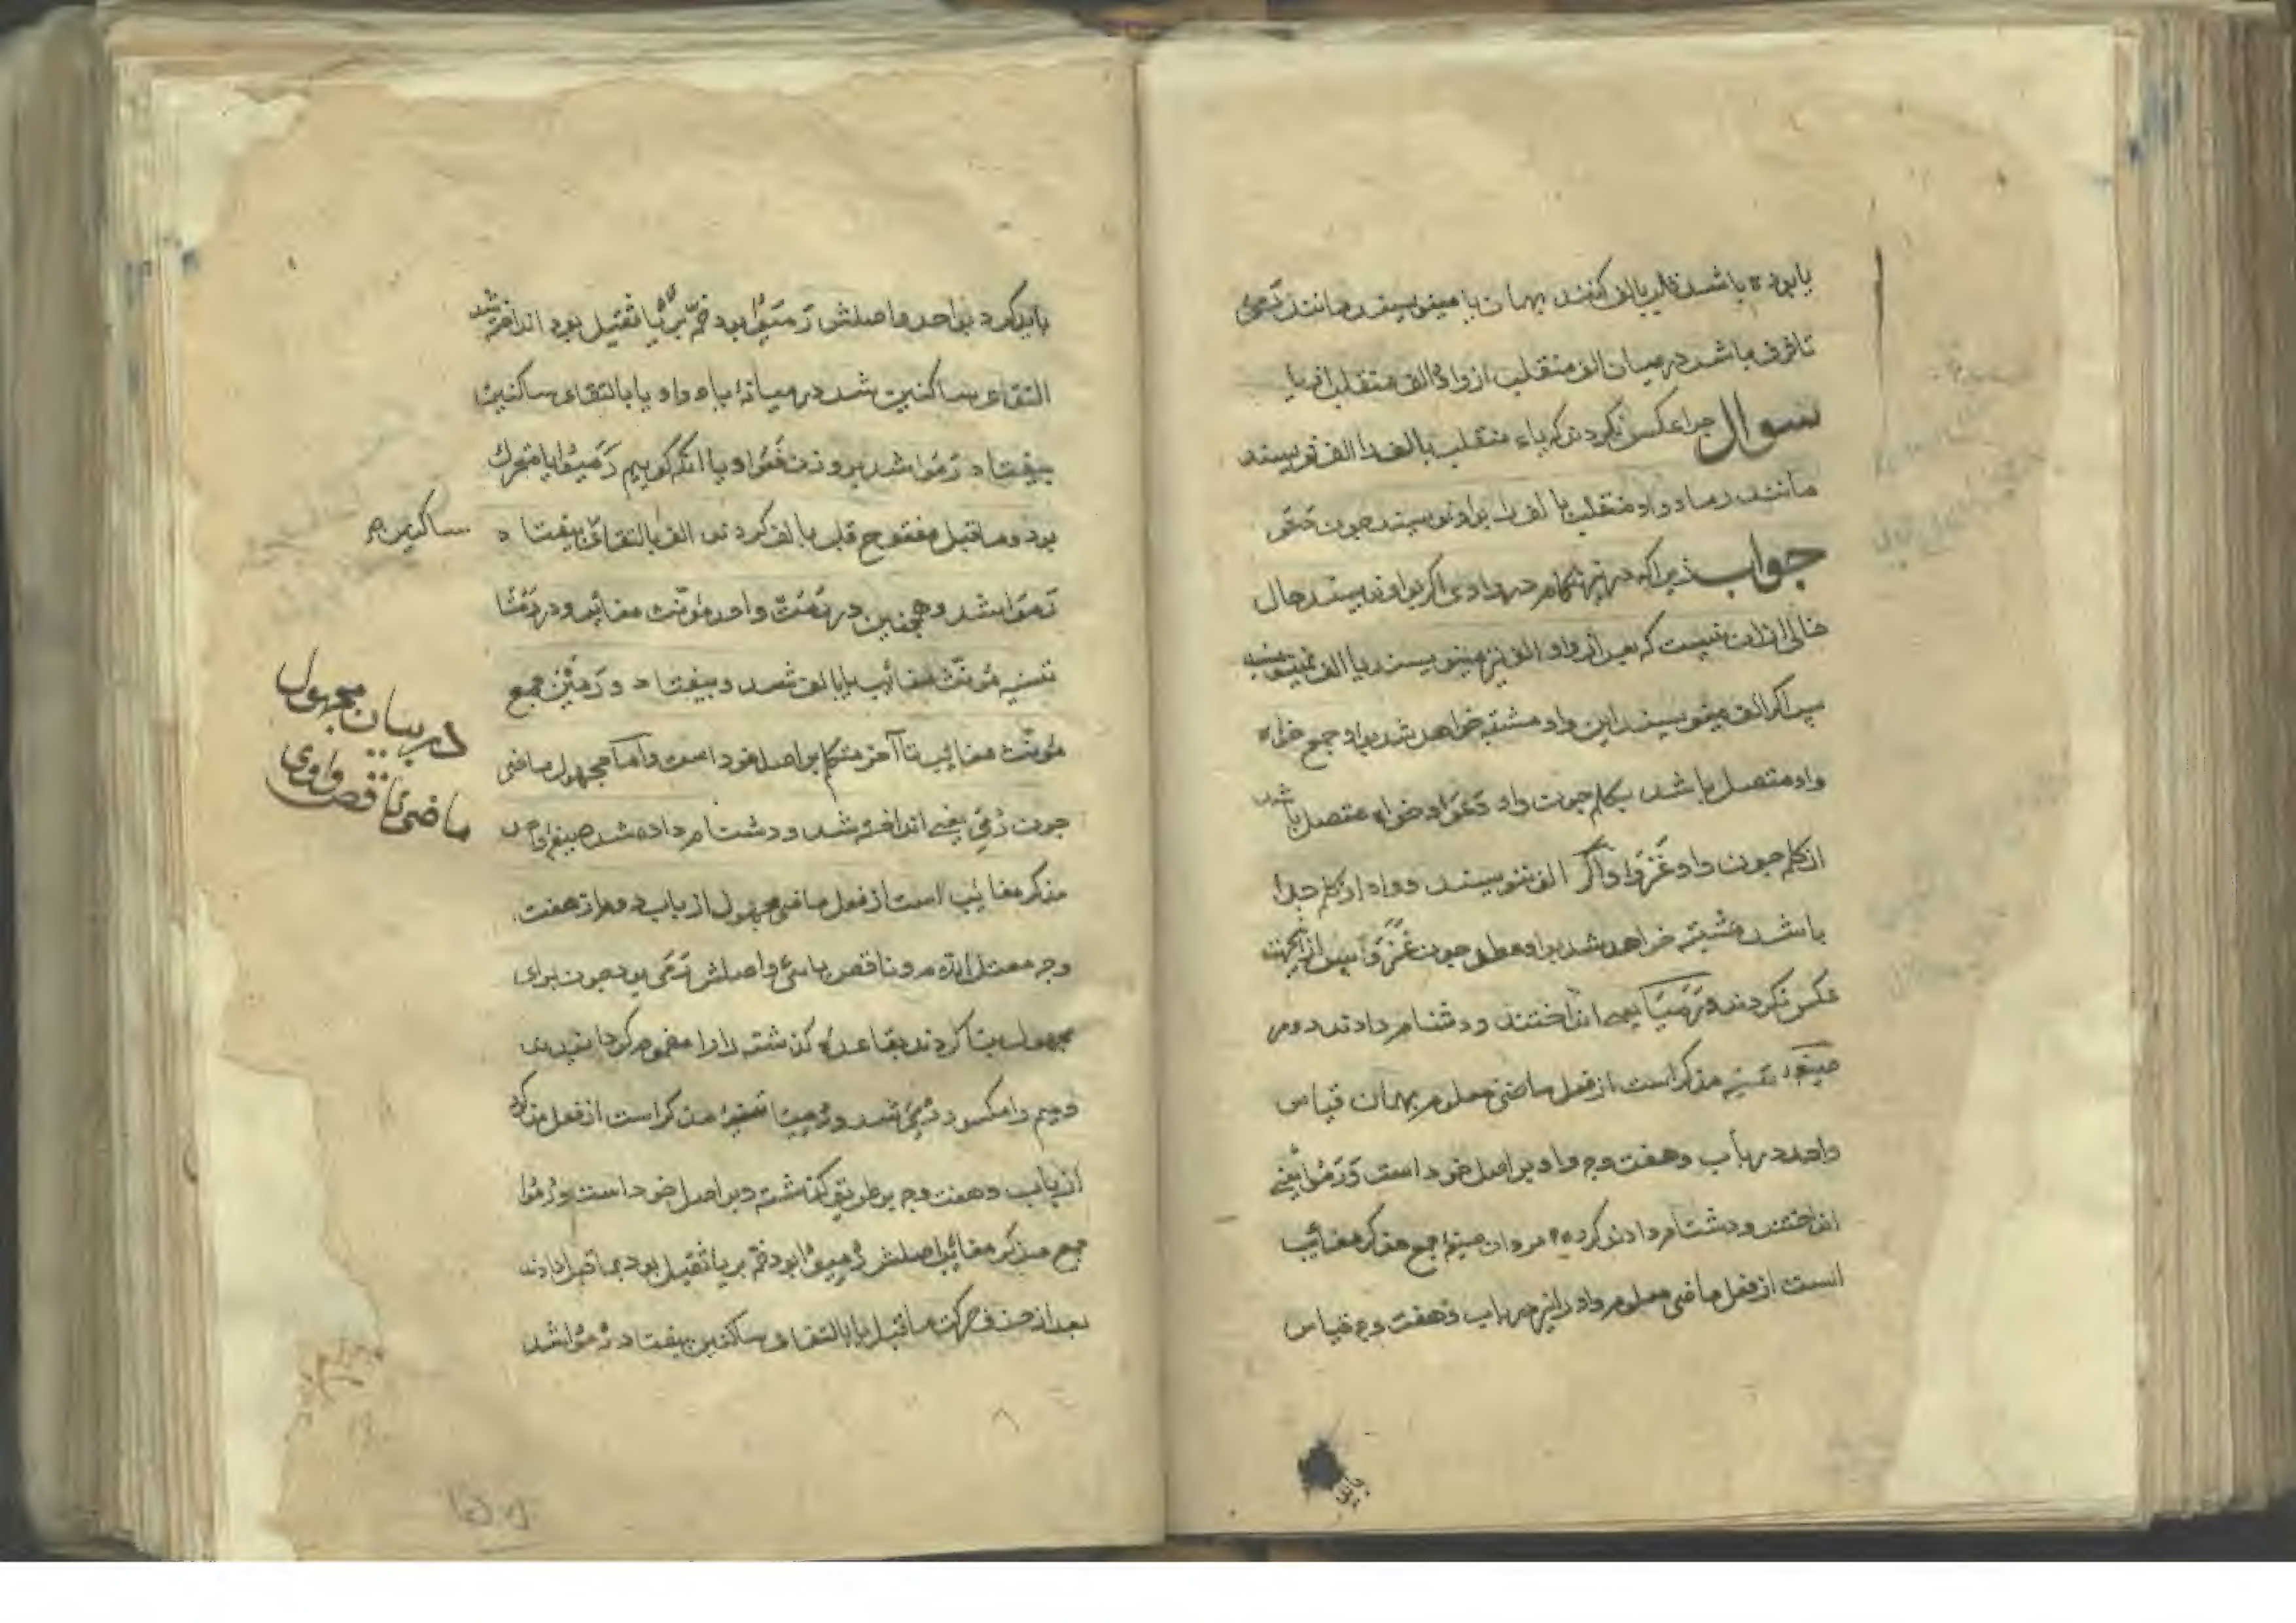 یا بوده باشد قلب بالف کنند بهمان یا مینویسند مانند رَمَیٰ
تا فرق باشد درمیان الف منقلب از واو و الف منقلب از یا
سوال چرا عکس نکردند که یاء منقلب بالف را الف نویسند
مانند رما و واو منقلب بالف را بواو نویسند چون غَزَو
جواب زیراکه در این هنگام در واوی اگر بواو نویسند حال
خالی از ان نیست که بعد از واو الف نیز مینویسند یا الف نمینویسند
پس اگر الف مینویسند این واو مشتبه خواهد شد بواو جمع خواه
واو متصل باشد بکلمه چون واو دَعَوا و خواه متصل باشد
از کلمه چون واو غَزَوا و اگر الف ننویسند و واو از کلمه جدا
باشد مشتبه خواهد شد بواو عطف چون غَزَ وَ پس از اینجهت
عکس نکردند و رَمَیَا یعنی انداختند و دشنام دادند دو مرد
صیغه تثنیه مذکر است از فعل ماضی معلوم بهمان قیاس
واحد در باب و هفت وجه و او بر اصل خود است وَ رَمَوا یعنی
انداختند و دشنام دادند کروه مردان صیغهٔ جمع مذکر مغائب
است از فعل ماضی معلوم و او را نیز در باب و هفت وجه قیاس
باید
باید کرد بواحد و اصلش رَمَیُوا بود ضمّه بر یا ثقیل بود انداخته شد
التقاء ساکنین شد درمیانهٔ یاء و واو یا بالتقاء ساکنین
بیفتاد رَمَوا شد بروزن فَعَوا و یا انکه کوییم رَمَیُوا یا متحرک
بود و ماقبل مفتوح قلب بالف کردند الف بالتقای بیفتاد
ساکنین
رَمَوا شد و همچنین در رَمَتْ واحد مؤنث مغایب و در رَمَتَا
تثنیه مؤنث مغائب یا بالف شد و بیفتاد و رَمَیْنَ جمع
مؤنث مغایب تا آخر متکلم بر اصل خود است و اما مجهول ماضی
در بیان مجهول
ماضی ناقص واوی
چون رُمِیَ یعنی انداخته شد و دشنام داده شد صیغه واحد
مذکر مغایب است از فعل ماضی مجهول از باب دوم از هفت
وجه معتل اللام و ناقص یائی و اصلش رَمَی بود چون برای
مجهول بنا کردند بقاعدهٔ کذشته را را مضموم کردانیدند
و میم را مکسور رُمِیَ شد و رُمِیَا تثنیهٔ مذکر است از فعل
از باب و هفت وجه بر طریق کذشته و بر اصل خود است و رُمُوا
جمع مذکر مغایب اصلش رُمِیُوا بود ضمه بر یا ثقیل بود بماقبل دادند
بعد از حذف حرکت ماقبل یا بالتقاء ساکنین بیفتاد رُمُوا شد